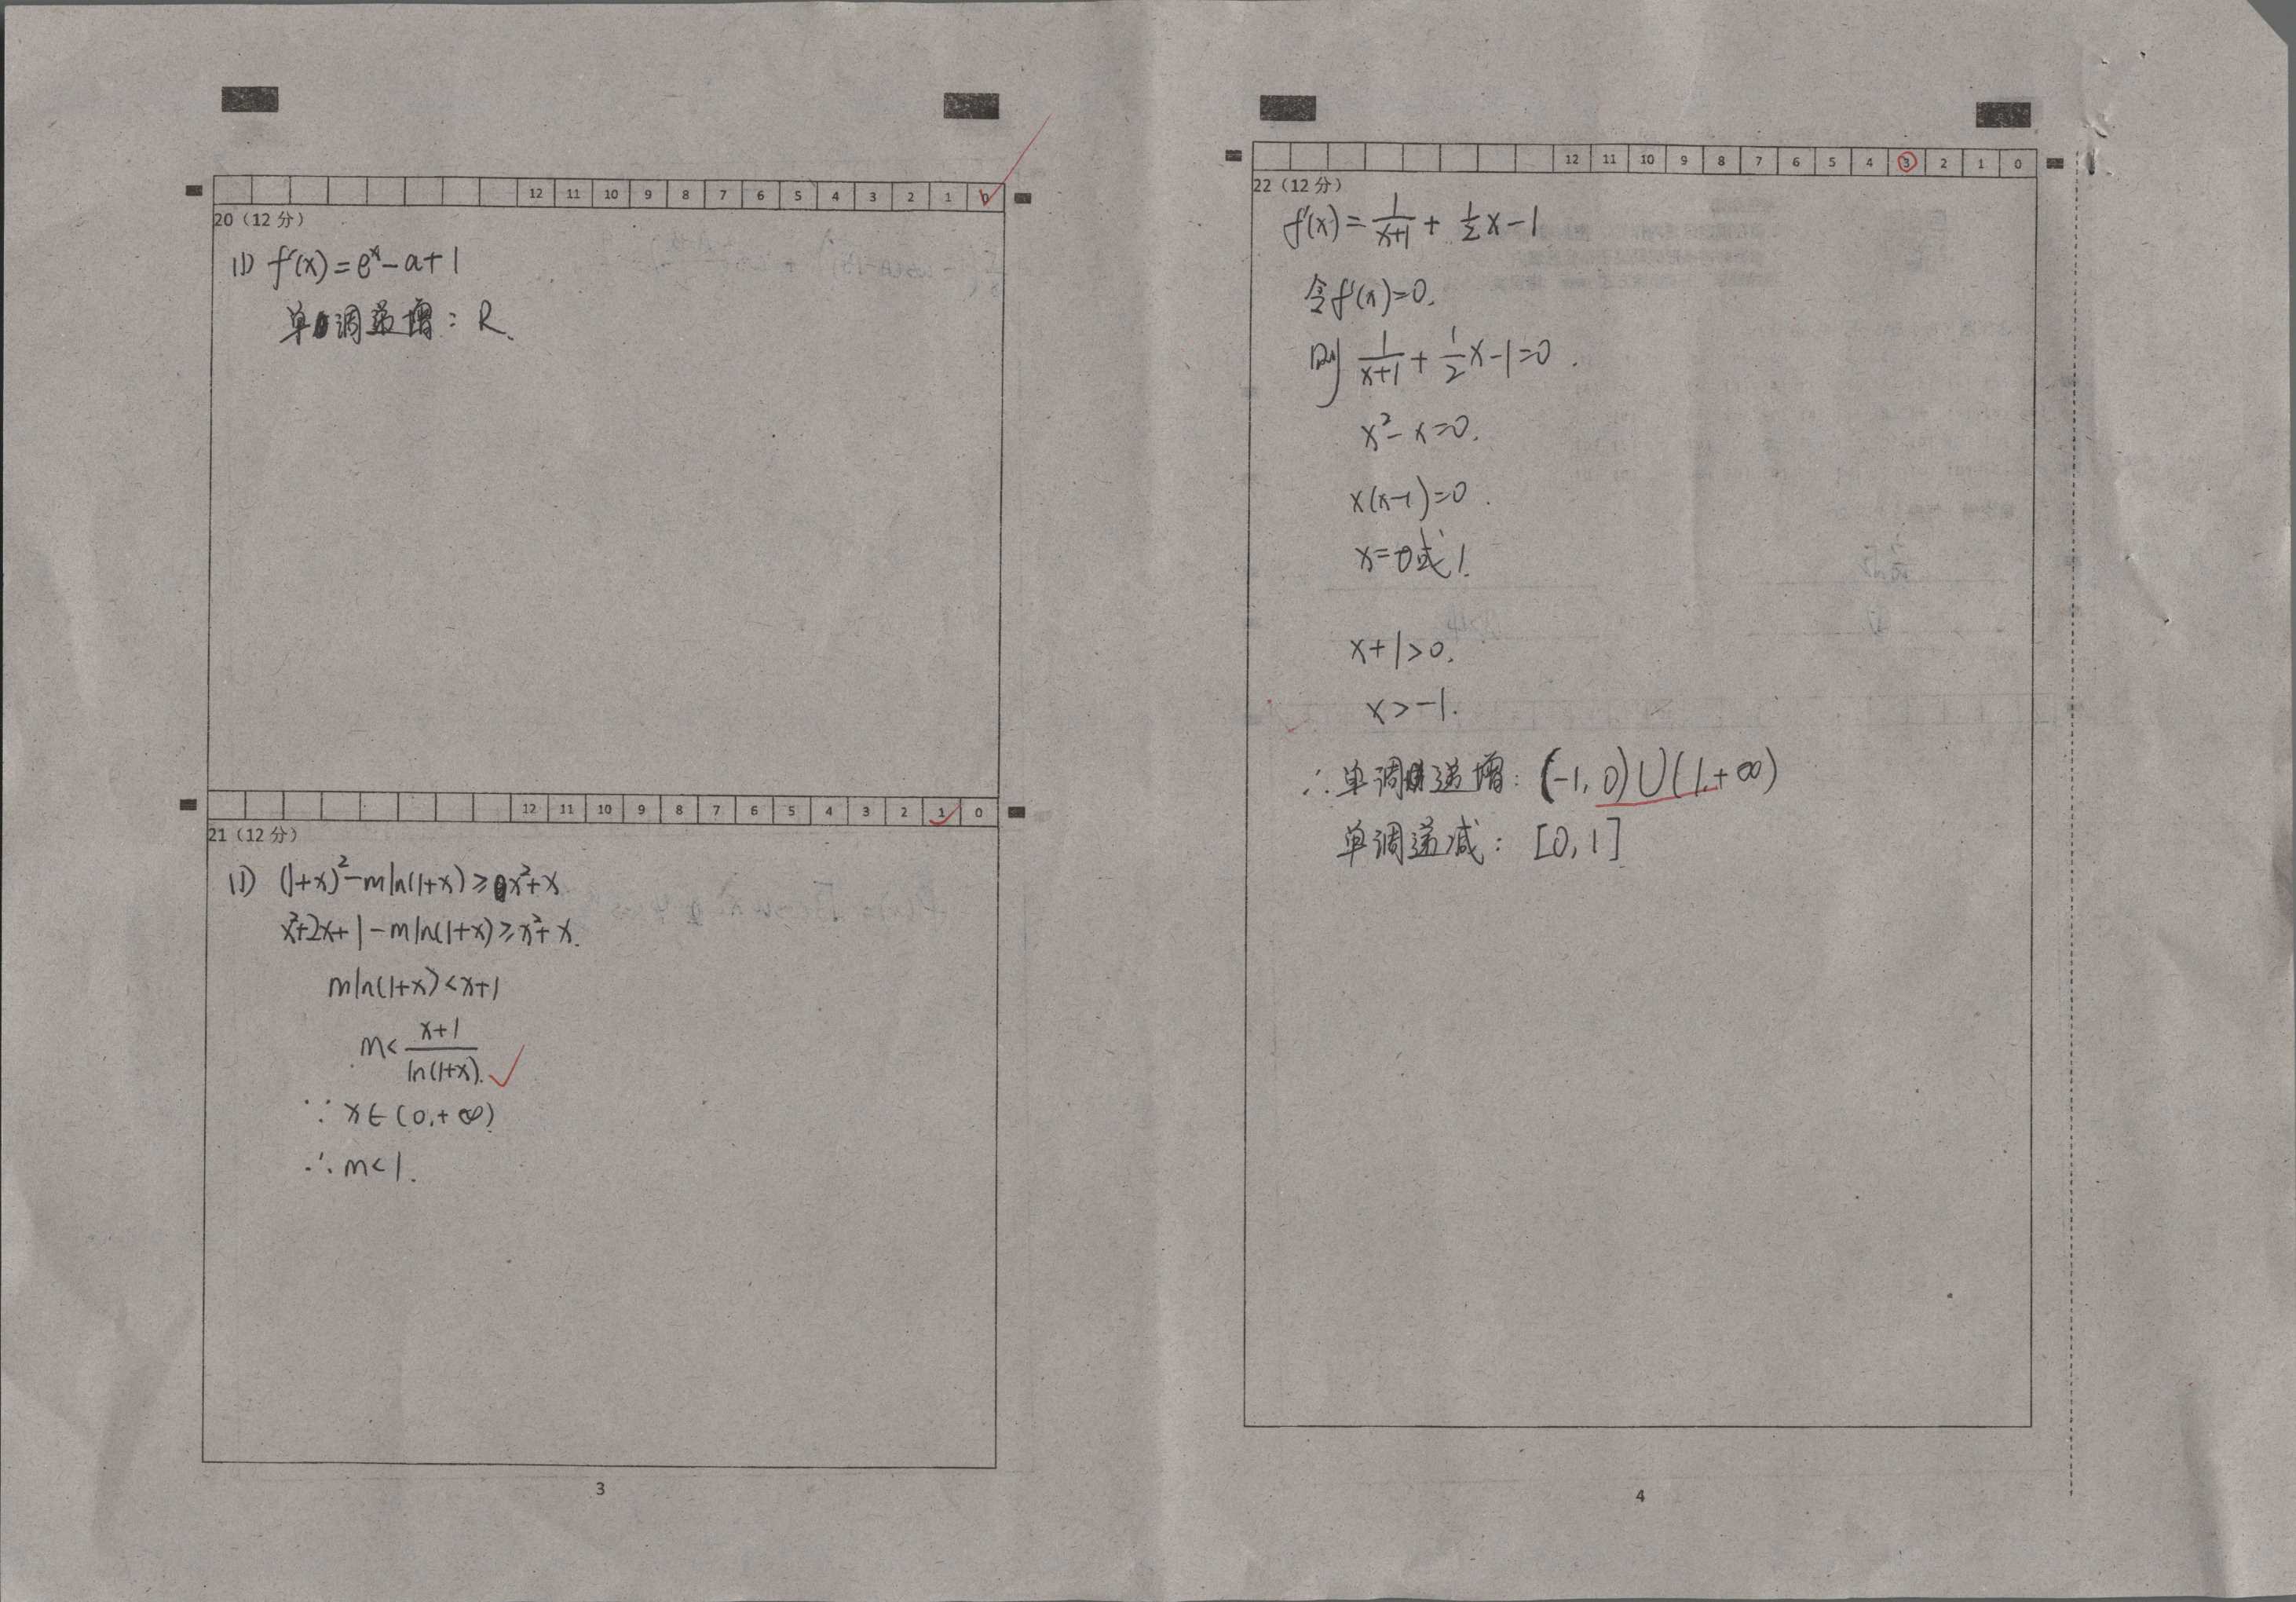 12 11 10 9 8 7 6 5 4 3 2 1 0
20（12 分）
(1) f'(x)=eˣ-a+1
单调递增：R.
12 11 10 9 8 7 6 5 4 3 2 1 0
21（12 分）
(1) (1+x)²-mln(1+x)≥x²+x
x²+2x+1-mln(1+x)≥x²+x.
mln(1+x)<x+1
m<(x+1)/ln(1+x).
∵ x∈(0,+∞)
∴ m<1.
3
12 11 10 9 8 7 6 5 4 3 2 1 0
22（12 分）
f'(x)=1/(x+1)+1/2x-1
令f'(x)=0.
则 1/(x+1)+1/2x-1=0.
x²-x=0.
x(x-1)=0.
x=0或1.
x+1>0.
x>-1.
∴单调递增：(-1,0)∪(1,+∞)
单调递减：[0,1]
4